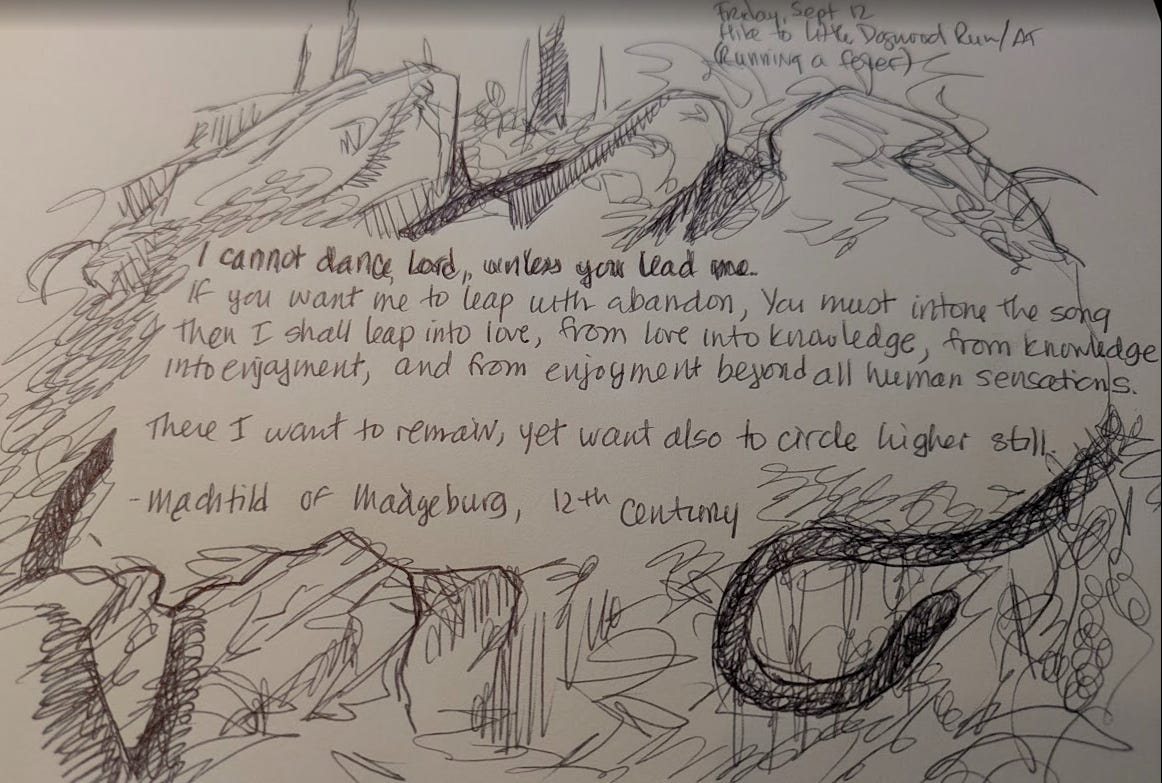 Friday, Sept 12
Hike to Little Dogwood Run/AT
(Running a fever)
I cannot dance, Lord, unless you lead me.
If you want me to leap with abandon, You must intone the song
then I shall leap into love, from love into knowledge, from knowledge
into enjoyment, and from enjoyment beyond all human sensations.
There I want to remain, yet want also to circle higher still.
-Machtild of Madgeburg, 12th Century